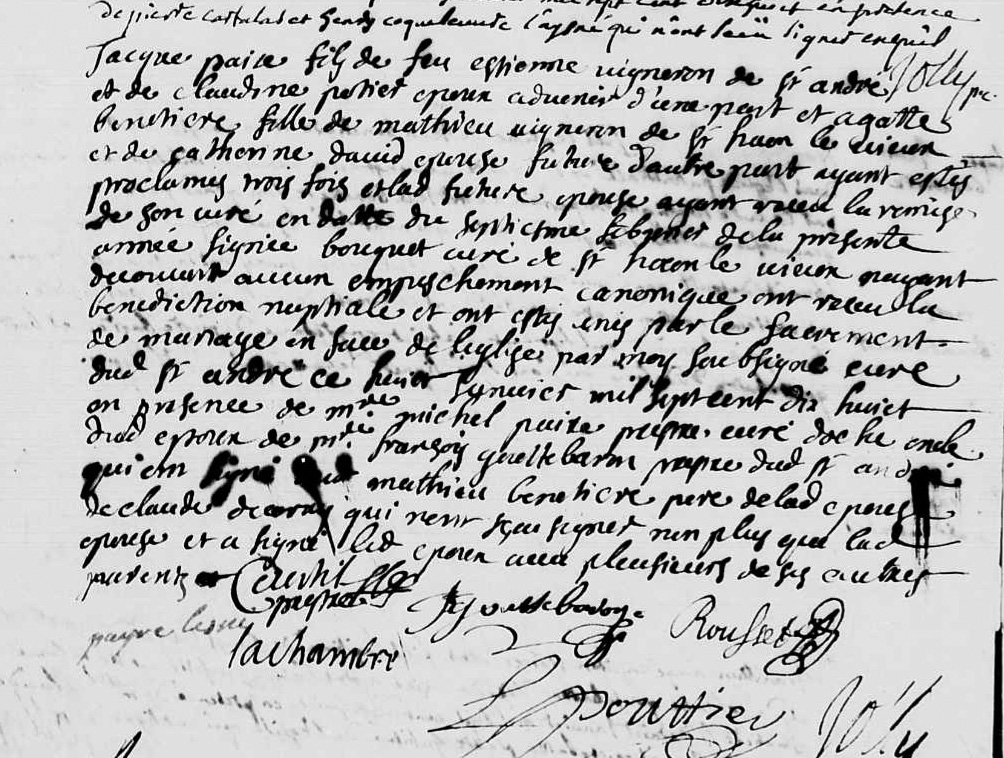 de pierre et henry l'aysné qui n'ont sceu signer enquis
Jolly prē.
Jacque paire fils de feu estienne vigneron de st andré
et de claudine potier epoux advenir d'une part et agatte
benetiere fille de mathieu vigneron de st haon le vieux
et de catherine david epouse future d'autre part ayant estés
proclamés trois fois et lad future epouse ayant receu la remise
de son curé en datte du septieme de la présente
année signée bouquet curé de st haon le vieux nayant
decouvert aucun empeschement canonique ont receu la
benediction nuptiale et ont estés unis par le sacrement
de mariage en face de leglise par moy soubsigné curé
dud st andré ce huict janvier mil sept cent dix huict
en presence de mre michel paire prestre curé doche oncle
dud espoux de mre françois gouttebaron dud st andré
qui ont signé mathieu benetiere pere de lad epouse
de claude qui nont sceu signer non plus que lad
epouse et a signé led epoux avec plusieurs de ses autres
parents
prestre
gouttebaron
Rousset
payre
lachambre
Pouttier
Jolly